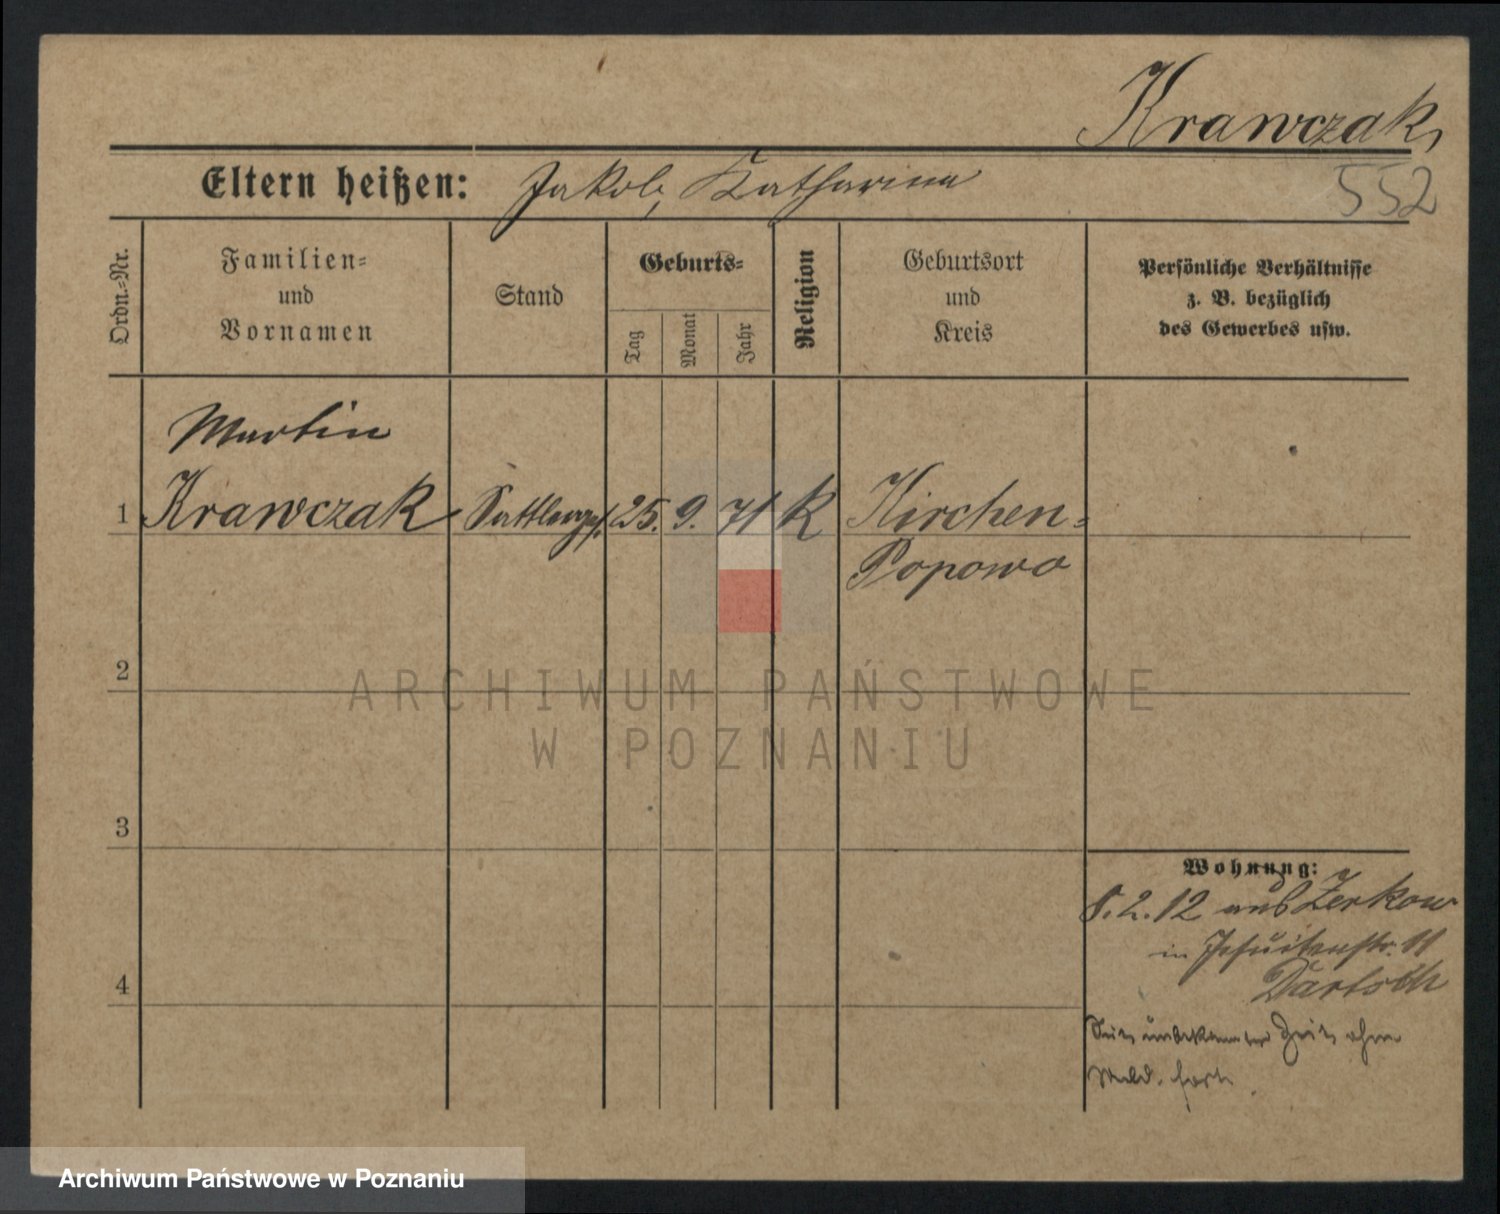 Krawczak
552
Eltern heißen: Jakob, Katharina
Ordn.-Nr.
Familien-
und
Vornamen
Stand
Geburts-
Tag
Monat
Jahr
Religion
Geburtsort
und
Kreis
Persönliche Verhältnisse
z. B. bezüglich
des Gewerbes usw.
Martin
1 Krawczak Sattlerges. 25. 9. 71 K Kirchen-
Popowo
2
3
4
Wohnung:
8. 2. 12 aus Zerkow
in Jesuitenstr. 11
Seit unbekannter Zeit ohne
Meld. fort.
ARCHIWUM PAŃSTWOWE
W POZNANIU
Archiwum Państwowe w Poznaniu